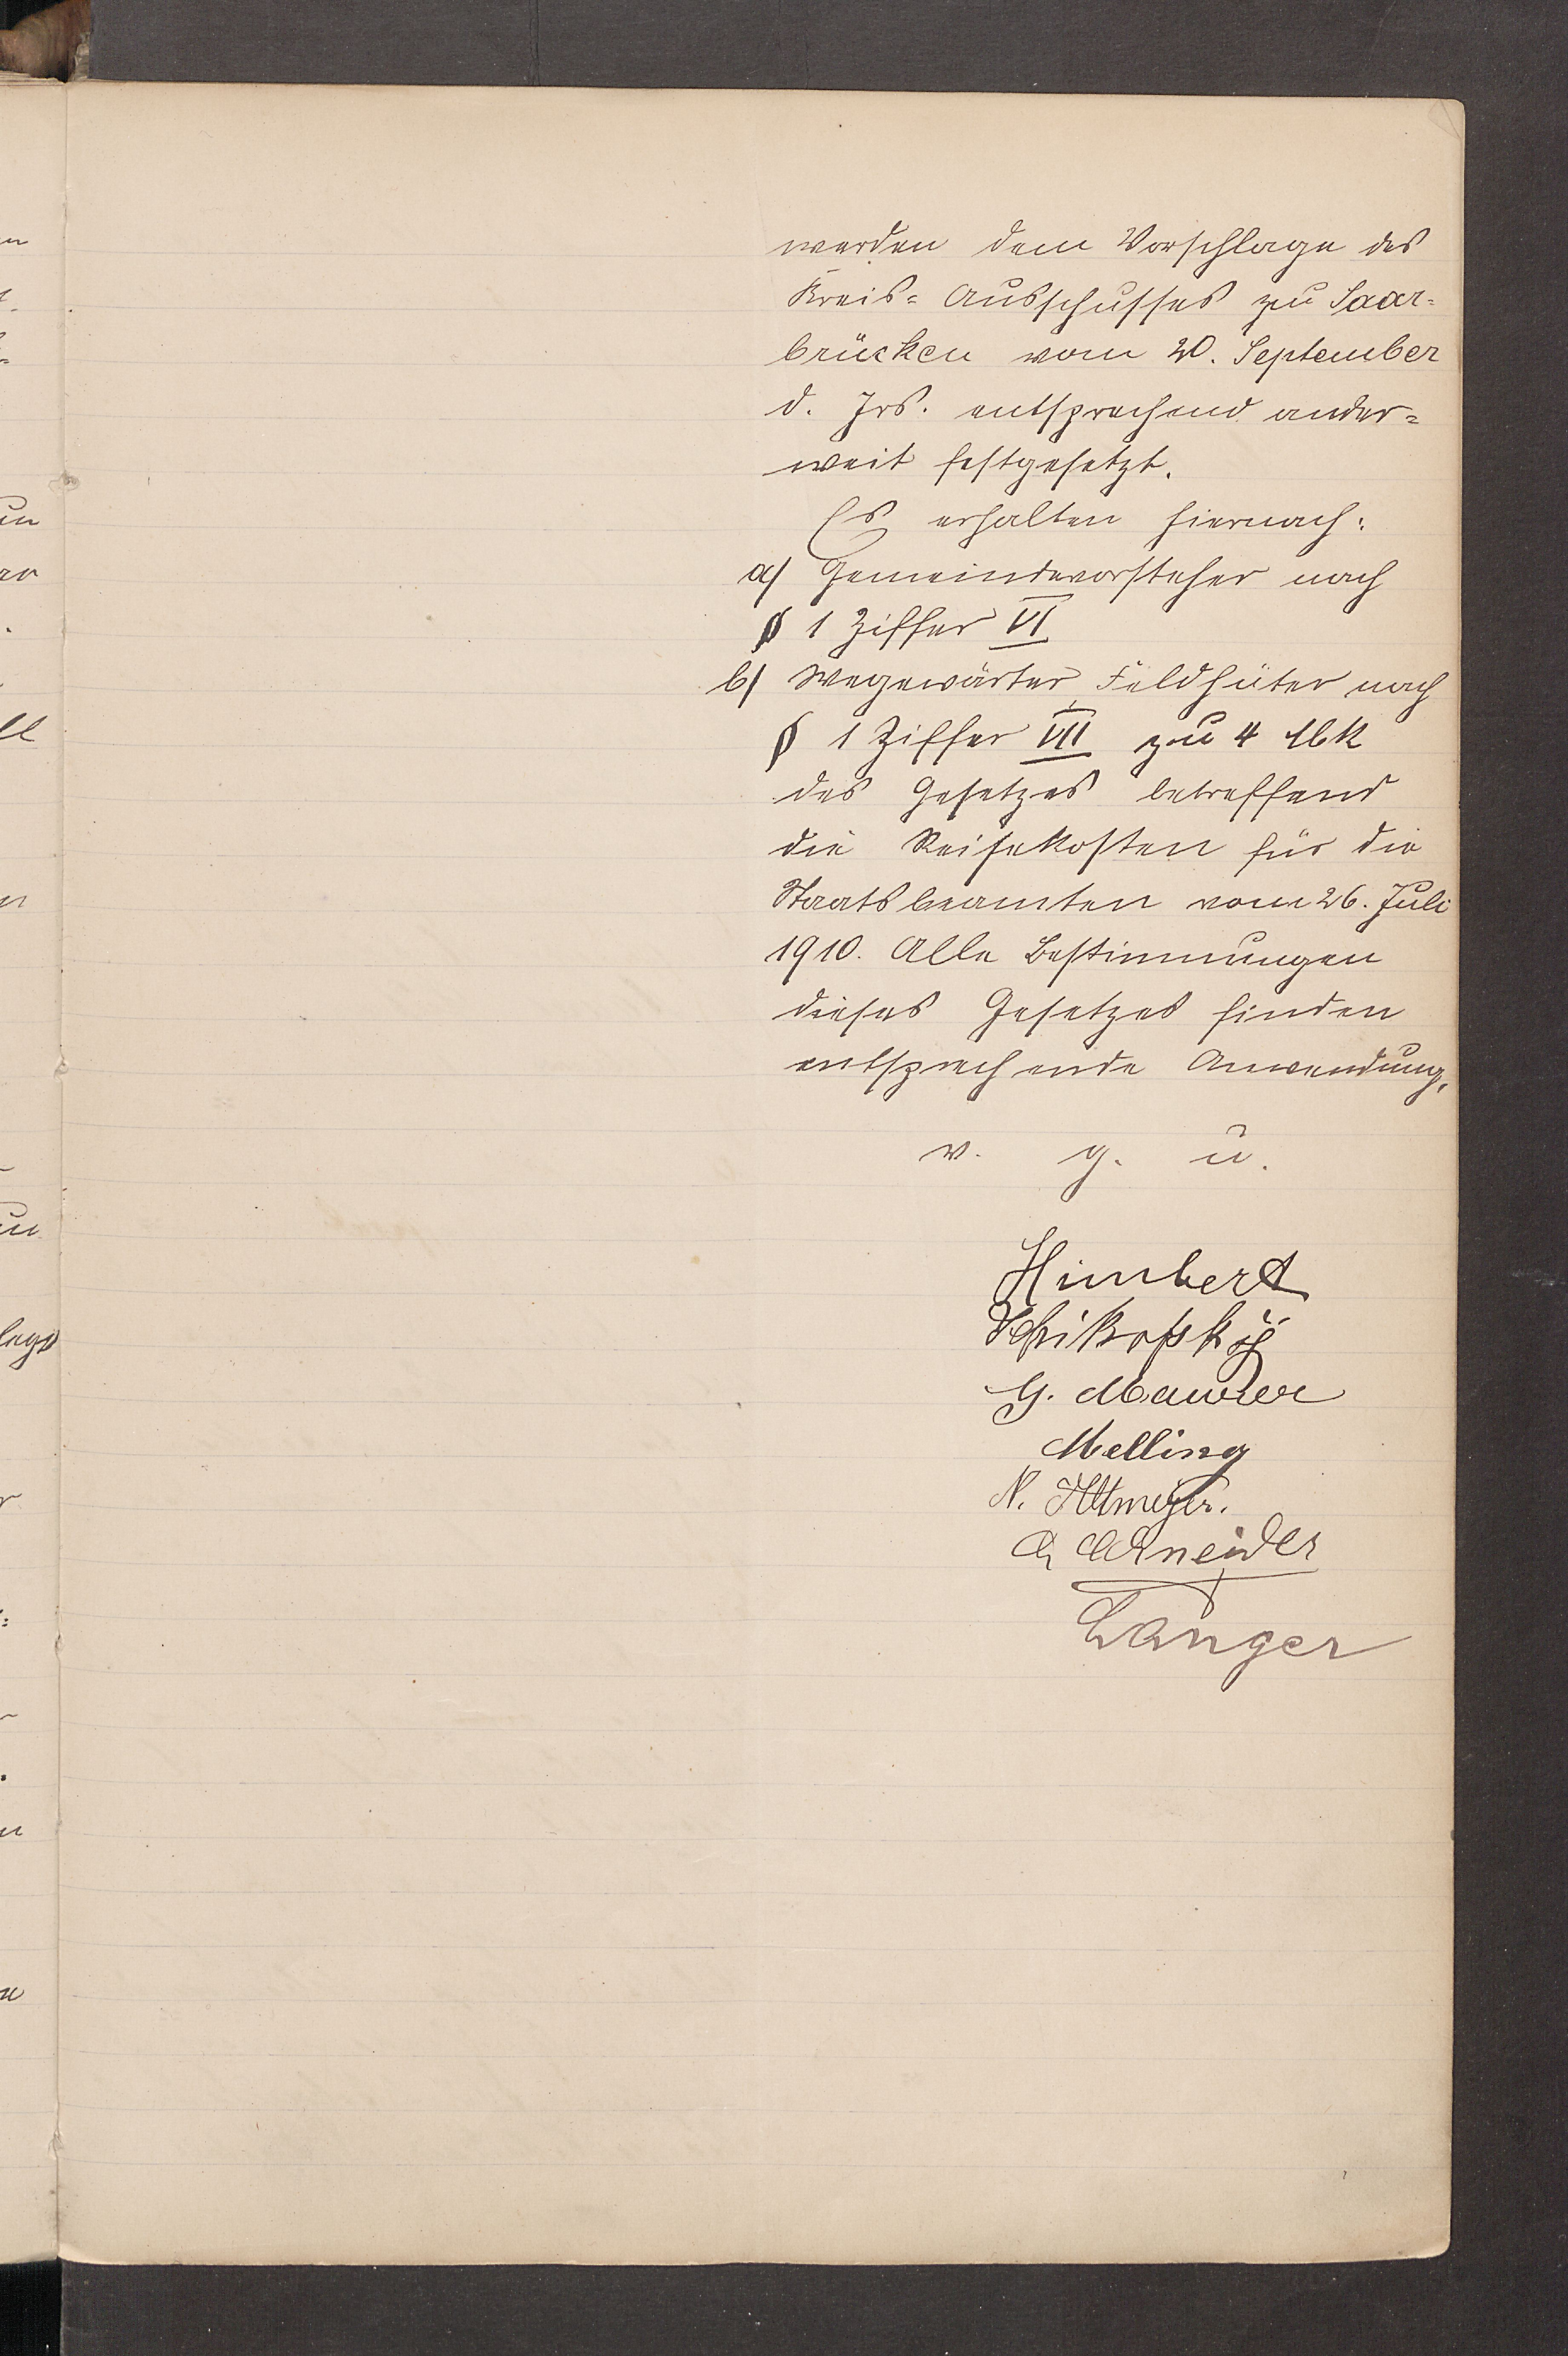 werden dem Vorschlage des
Kreis= Ausschusses zu Saar=
brücken vom 20. September
d. Jrs. entsprechend ander=
weit festgesetzt.
Es erhalten hiernach:
a/ Gemeindevorsteher nach
§ 1 Ziffer VI
b/ Wegewärter, Feldhüter nach
§ 1 Ziffer VII zu 4 Mk
des Gesetzes betreffend
die Reisekosten für die
Staatsbeamten vom 26. Juli
1910. Alle Bestimmungen
dieses Gesetzes finden
entsprechende Anwendung.
v. g. u.
Himbert
G. Maurer
Melling
N. Altmeyer.
Schneider
Langer